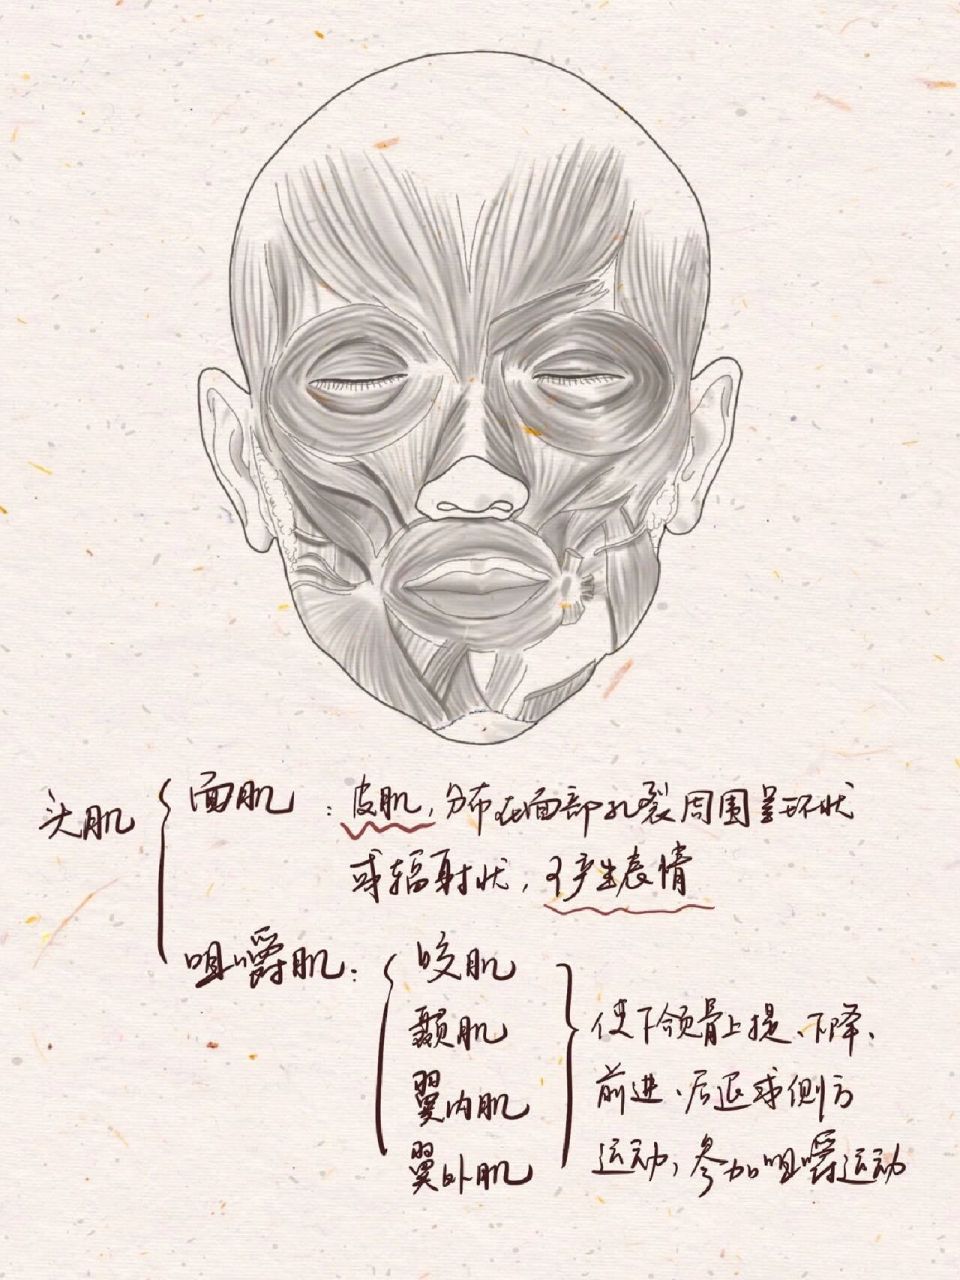 头肌
面肌：皮肌，分布在面部孔裂周围呈环状
或辐射状，可产生表情
咀嚼肌：
咬肌
颞肌
翼内肌
翼外肌
使下颌骨上提、下降、
前进、后退或侧方
运动，参加咀嚼运动